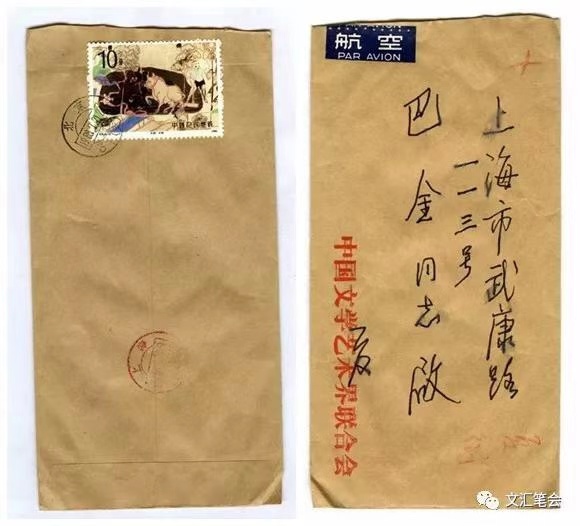 10
中国人民邮政
北
上海
航空
PAR AVION
上海市武康路
一一三号
巴金同志启
中国文学艺术界联合会
文汇笔会